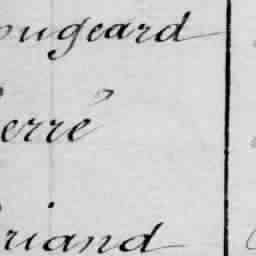 ougeard
erré
riand